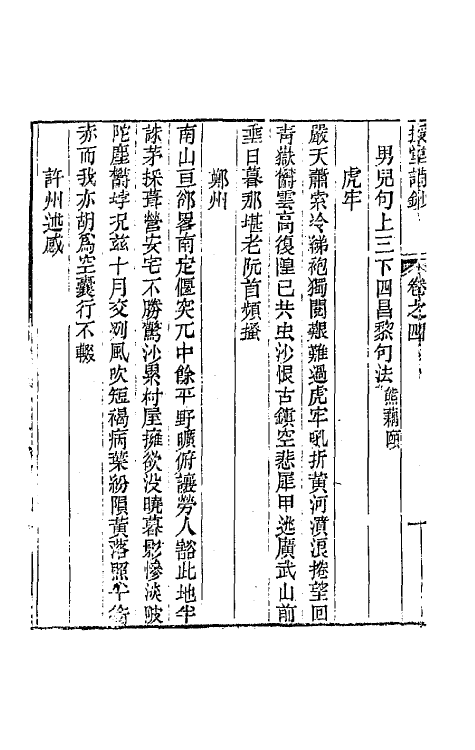 授堂詩鈔 卷之四 一
男兒句上三下四昌黎句法 熊藕頤
虎牢
嚴天蕭索冷綈袍獨閱艱難過虎牢吼折黃河濆浪捲望回
青嶽欝雲高復隍已共虫沙恨古鎮空悲犀甲逃廣武山前
乖日暮那堪老阮首頻搔
鄭州
南山亘郤畧南定偃突兀中餘平野曠俯讓勞人豁此地半
誅茅採葺營安宅不勝驚沙累村屋擁欲没曉暮影慘淡陂
陀塵欝㶿况兹十月交冽風吹短褐病葉紛隕黃落照乍銜
赤而我亦胡為空囊行不輟
許州述感